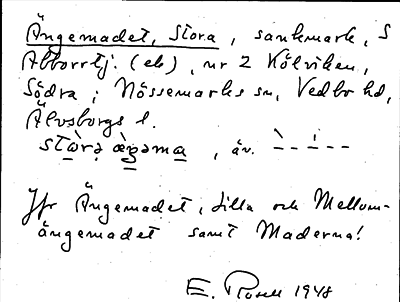 Ängemadet, Stora, sankmark, S
Abborrtj. (ek), nr 2 Kölviken,
Södra; Nössemarks sn, Vedbo hd,
Älvsborgs l.
stòrə æ̀gəma, äv.
Jfr Ängemadet, Lilla och Mellom-
ängemadet samt Maderna!
E. Rosell 1948